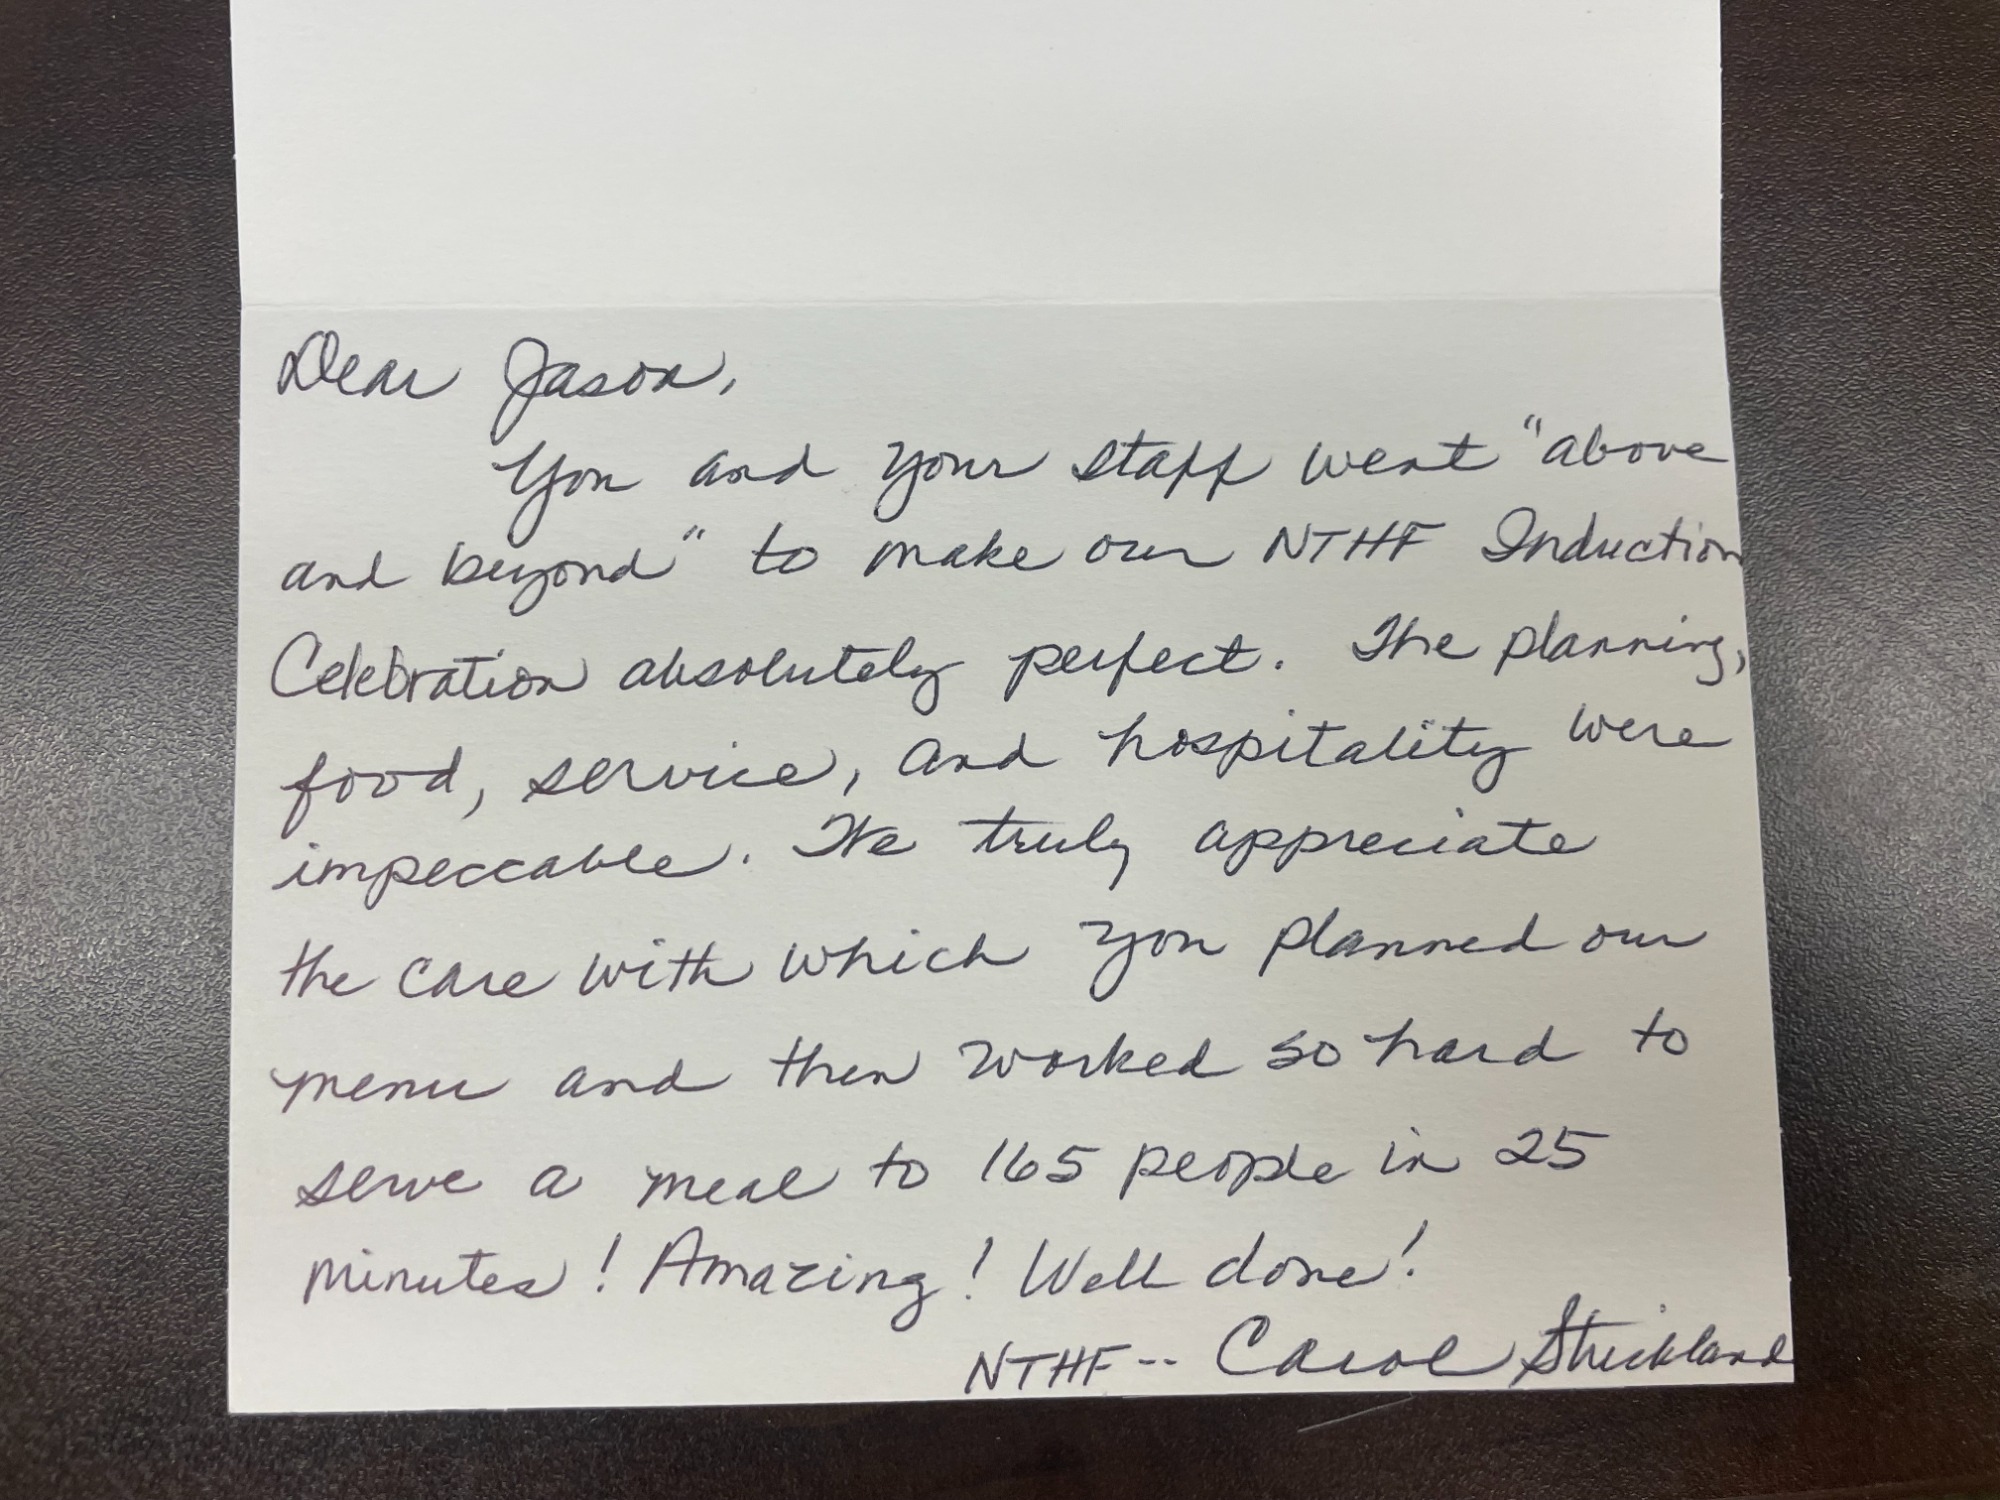 Dear Jason,
You and your staff went "above
and beyond" to make our NTHF Induction
Celebration absolutely perfect. The planning,
food, service, and hospitality were
impeccable. We truly appreciate
the care with which you planned our
menu and then worked so hard to
serve a meal to 165 people in 25
minutes! Amazing! Well done!
NTHF -- Carol Strickland